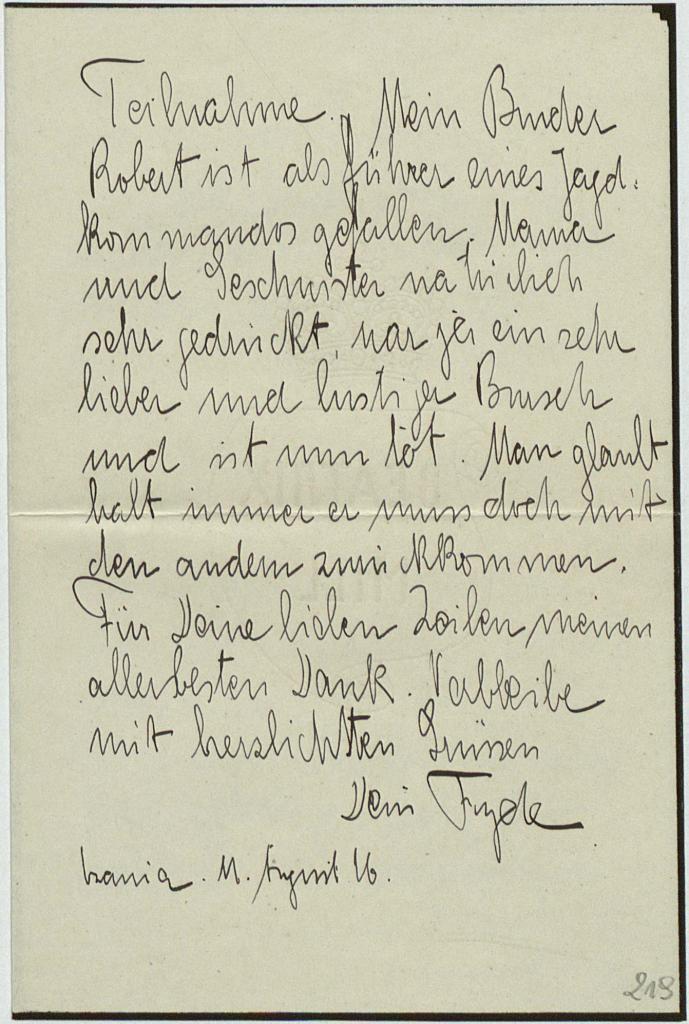 Teilnahme. Mein Bruder
Robert ist als Führer eines Jagd-
kommandos gefallen. Mama
und Geschwister natürlich
sehr gedrückt, war ja ein sehr
lieber und lustiger Bursch
und ist nun tot. Man glaubt
halt immer er muss doch mit
den andern zurückkommen.
Für Deine lieben Zeilen meinen
allerbesten Dank. Verbleibe
mit herzlichsten Grüssen
Dein
11. August 16.
219